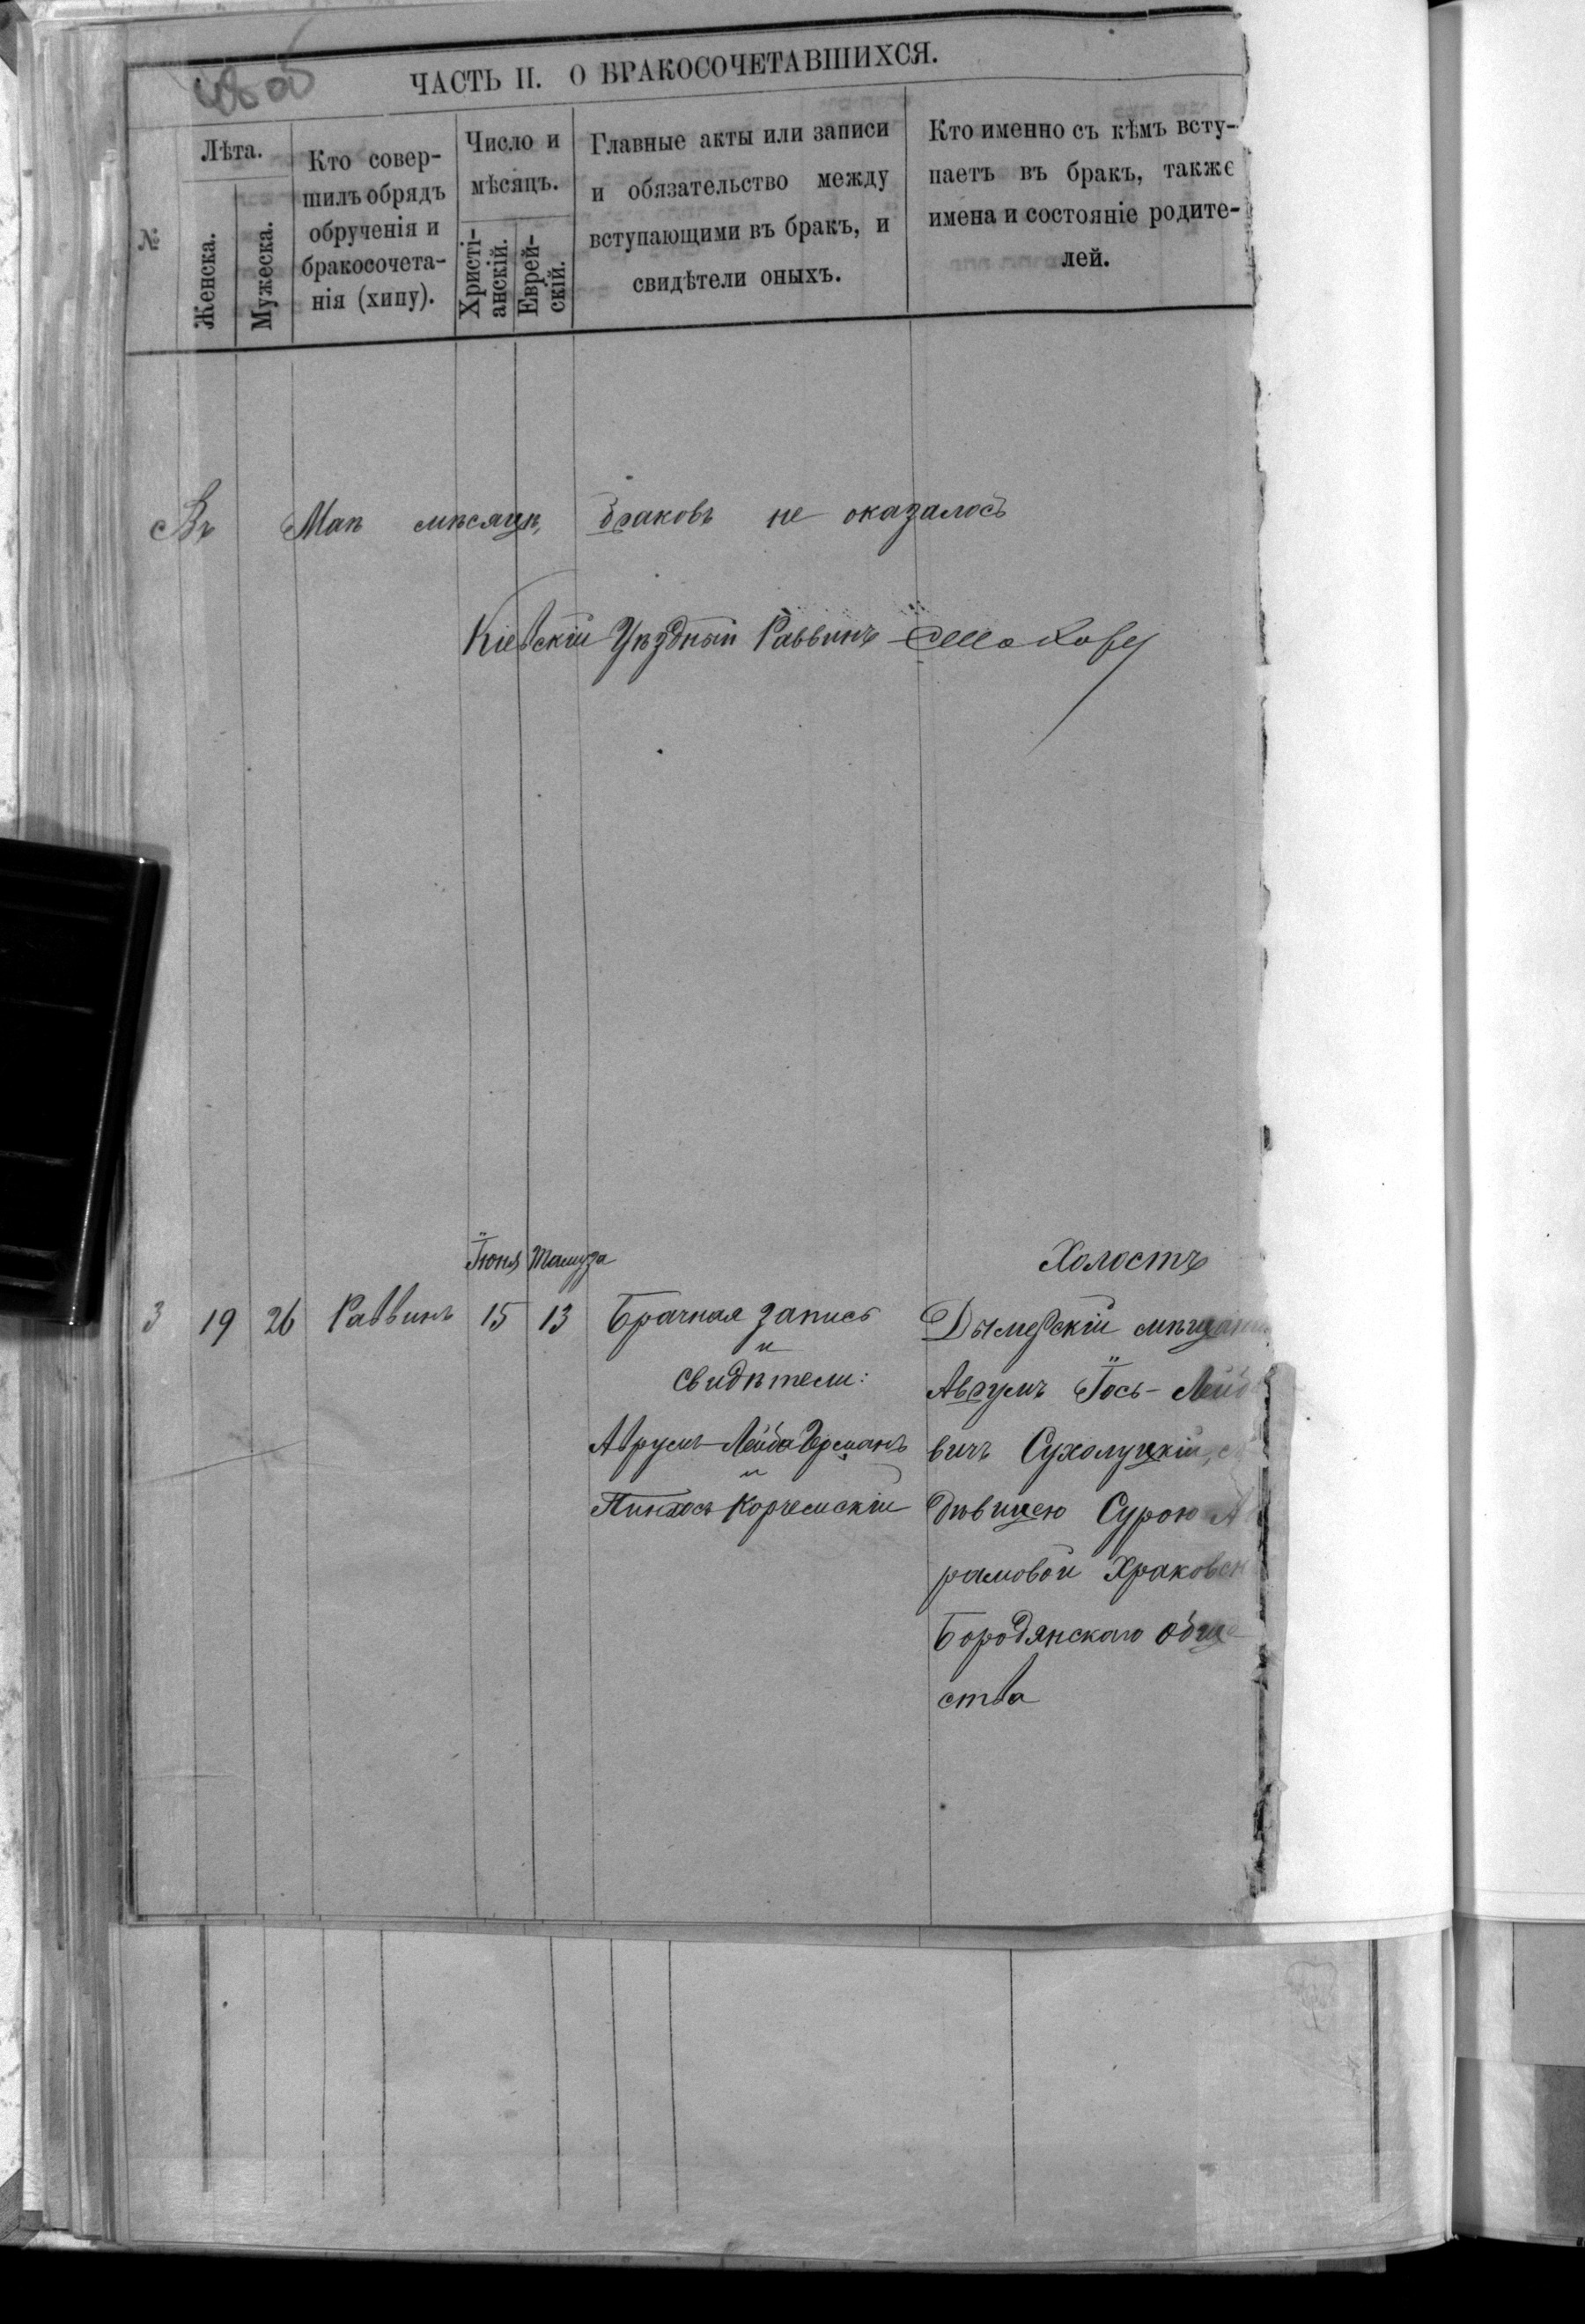 ЧАСТЬ II. О БРАКОСОЧЕТАВШИХСЯ.
№
Лѣта.
Женска.
Мужеска.
Кто совер-
шилъ обрядъ
обрученія и
бракосочета-
нія (хипу).
Число и
мѣсяцъ.
Христі-
анскій.
Еврей-
скій.
Главные акты или записи
и обязательство между
вступающими въ бракъ, и
свидѣтели оныхъ.
Кто именно съ кѣмъ всту-
паетъ въ бракъ, также
имена и состояніе родите-
лей.
Въ Маѣ мѣсяцѣ, браковъ не оказалось
Кіевскій Уѣздный Раввинъ
Іюня Тамуза
3 19 26 Раввинъ 15 13
Брачная запись
и
свидѣтели:
Аврумъ-Лейба Германъ
и
Пинхосъ Корчемскій
Холостъ
Дымерскій мѣщанин
Аврумъ Іось-Лейбо
вичъ Сухолуцкій, съ
дѣвицею Сурою А
рамовой Храковск
Бородянскаго обще
ства